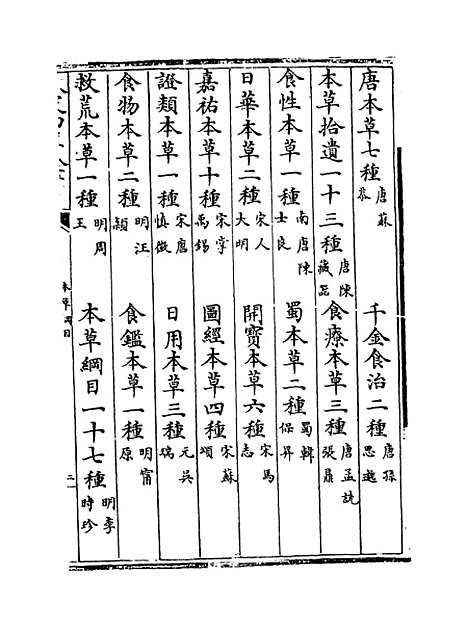 唐本草七種 唐蘇恭 千金食治二種 唐孫思邈
本草拾遺一十三種 唐陳藏器 食療本草三種 唐孟詵張鼎
食性本草一種 南唐陳士良 蜀本草二種 蜀韓保昇
日華本草二種 宋人大明 開寶本草六種 宋馬志
嘉祐本草十種 宋掌禹錫 圖經本草四種 宋蘇頌
證類本草一種 宋唐慎微 日用本草三種 元吳瑞
食物本草二種 明汪穎 食鑑本草一種 明甯原
救荒本草一種 明周王 本草綱目一十七種 明李時珍
本草綱目